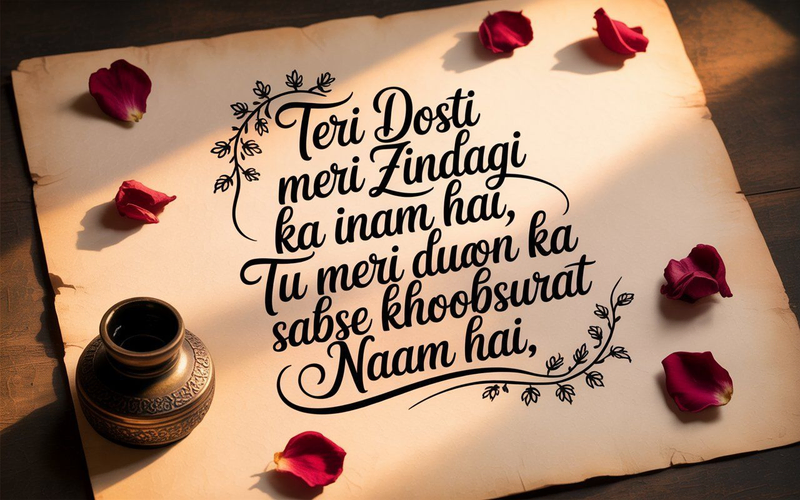 Teri Dosti
meri Zindagi
ka inam hai,
Tu meri duaon ka
sabse khoobsurat
Naam hai,